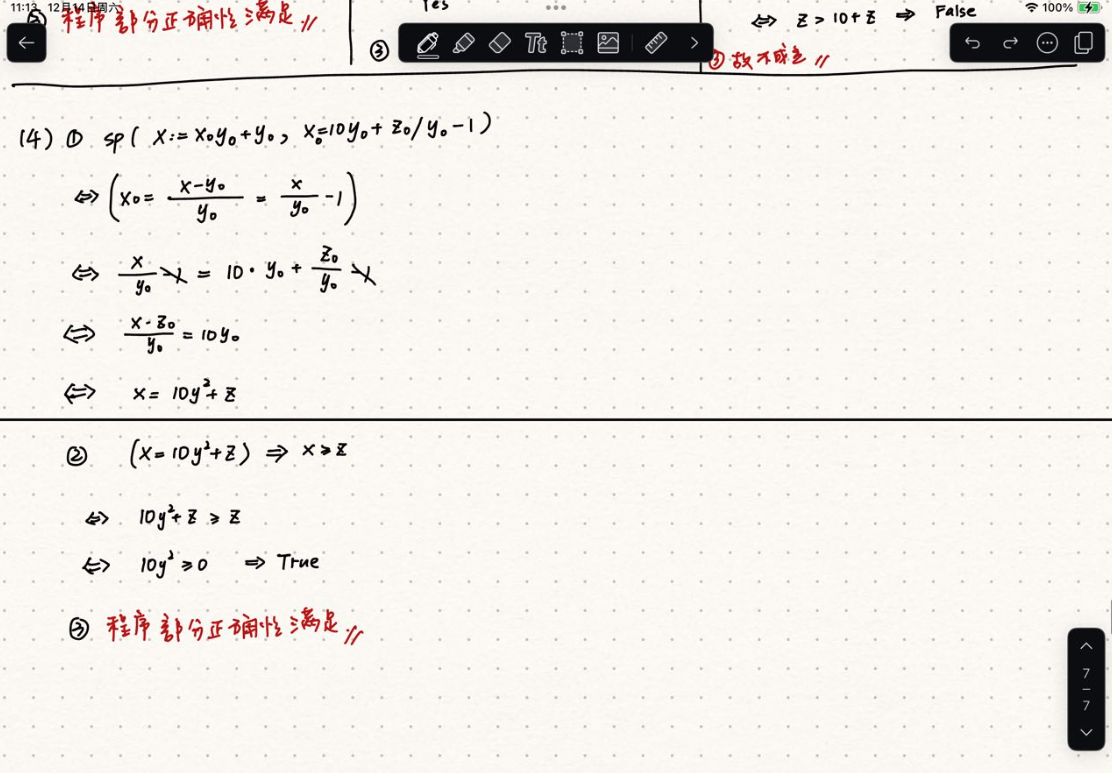 11:13 12月14日周六
100%
Yes
⇔ z > 10 + z ⇒ False
⑤ 程序部分正确性满足 //
③
③ 故不成立 //
Tt
(4) ① sp( x := x₀y₀ + y₀, x₀ = 10y₀ + z₀/y₀ - 1 )
⇔ ( x₀ = (x - y₀)/y₀ = x/y₀ - 1 )
⇔ x/y₀ - 1 = 10 · y₀ + z₀/y₀ - 1
⇔ (x - z₀)/y₀ = 10y₀
⇔ x = 10y² + z
② (x = 10y² + z) ⇒ x ≥ z
⇔ 10y² + z ≥ z
⇔ 10y² ≥ 0 ⇒ True
③ 程序部分正确性满足 //
7
7